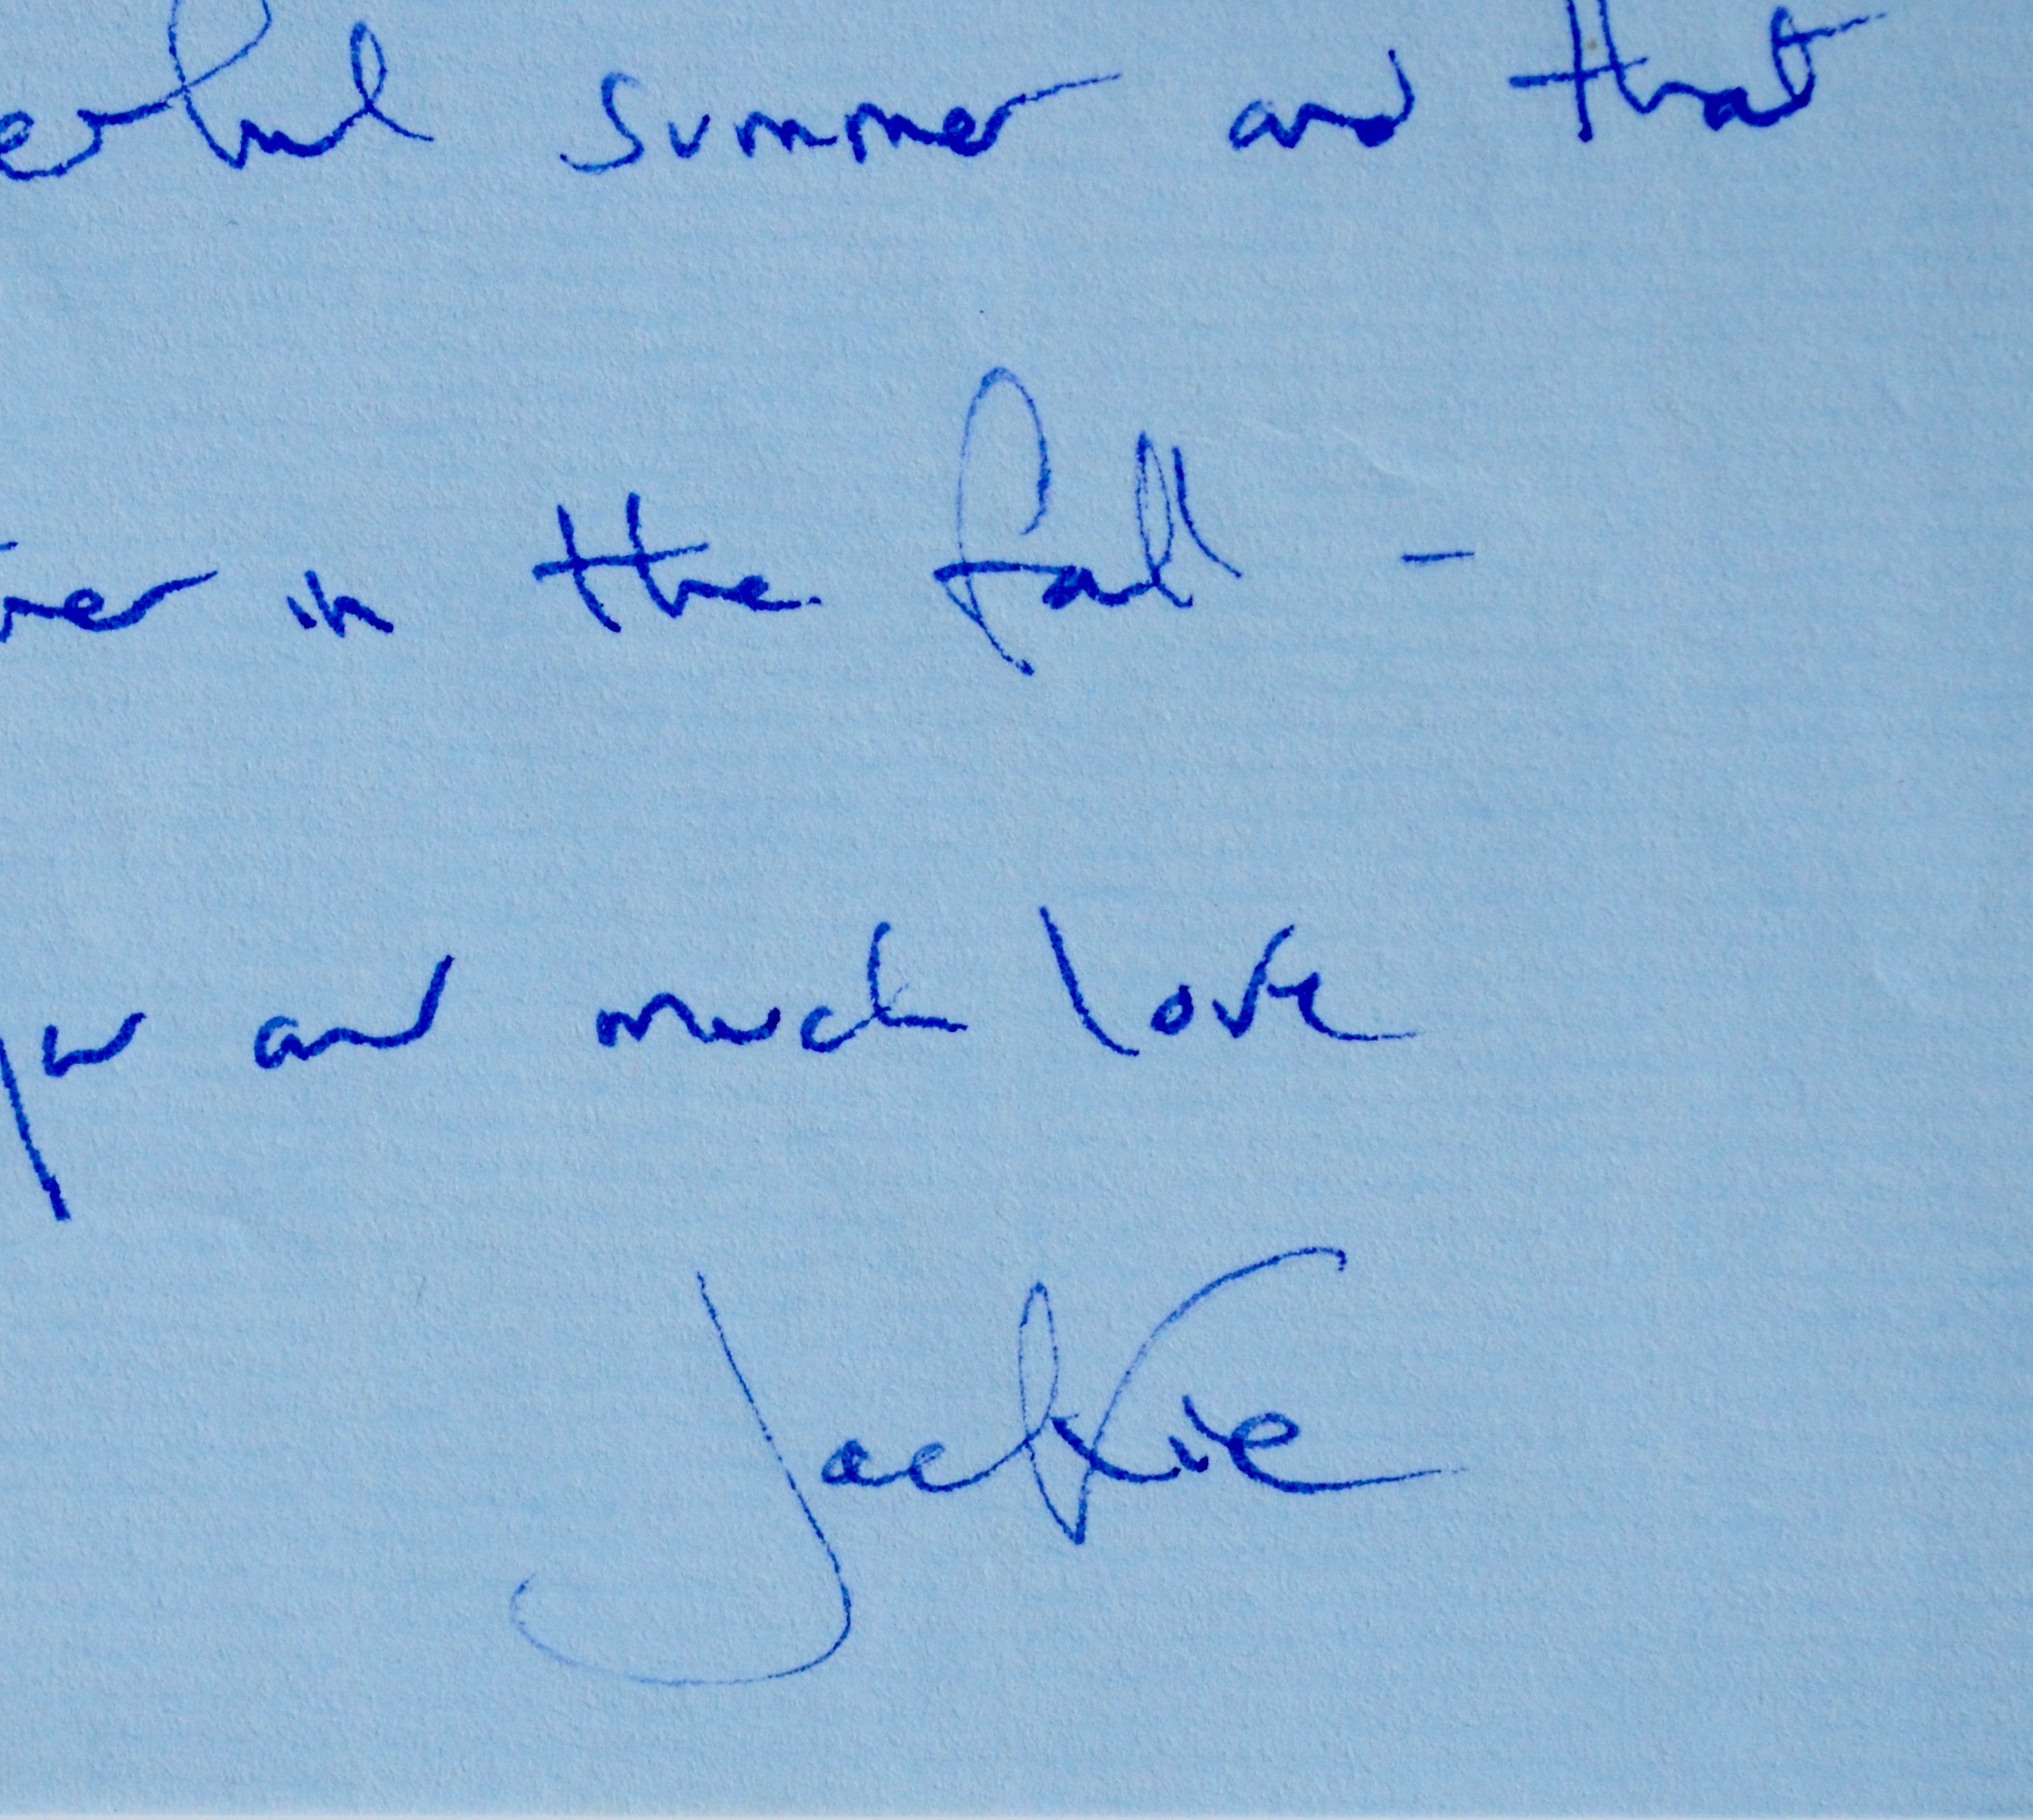 erful summer and that
her in the fall -
you and much love
Jackie